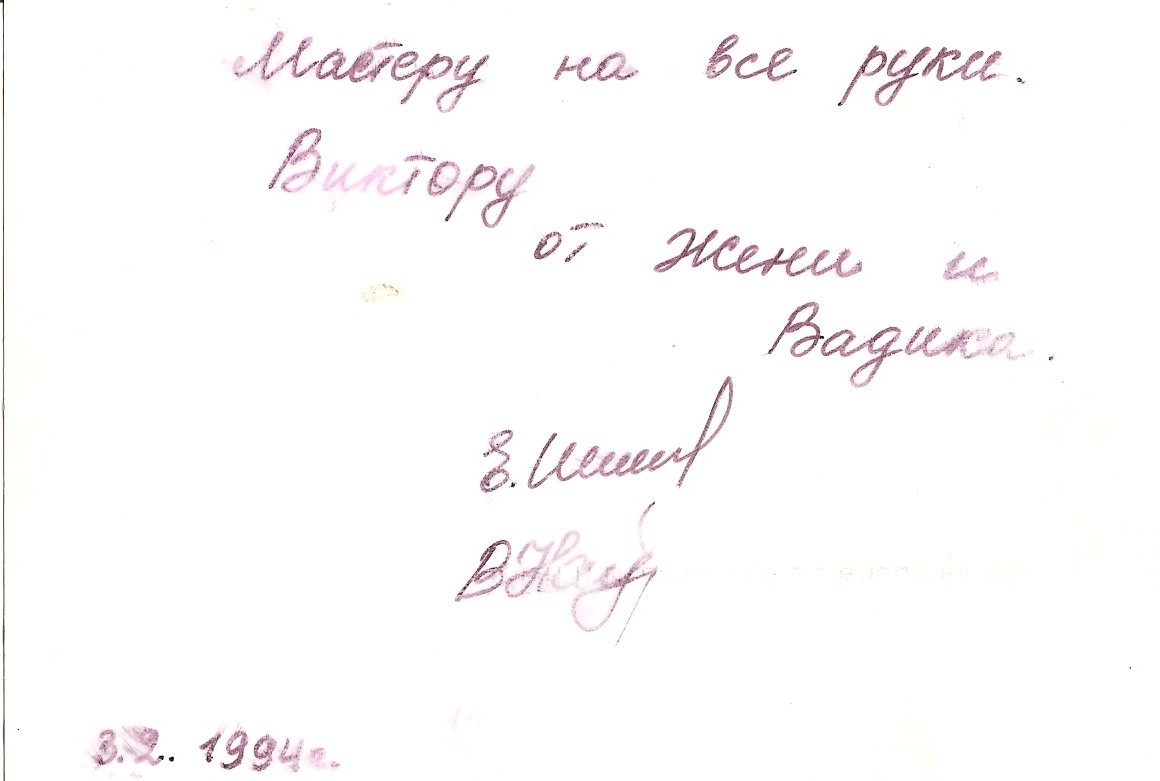 Мастеру на все руки.
Виктору
от Жени и
Вадика.
3.2. 1994г.